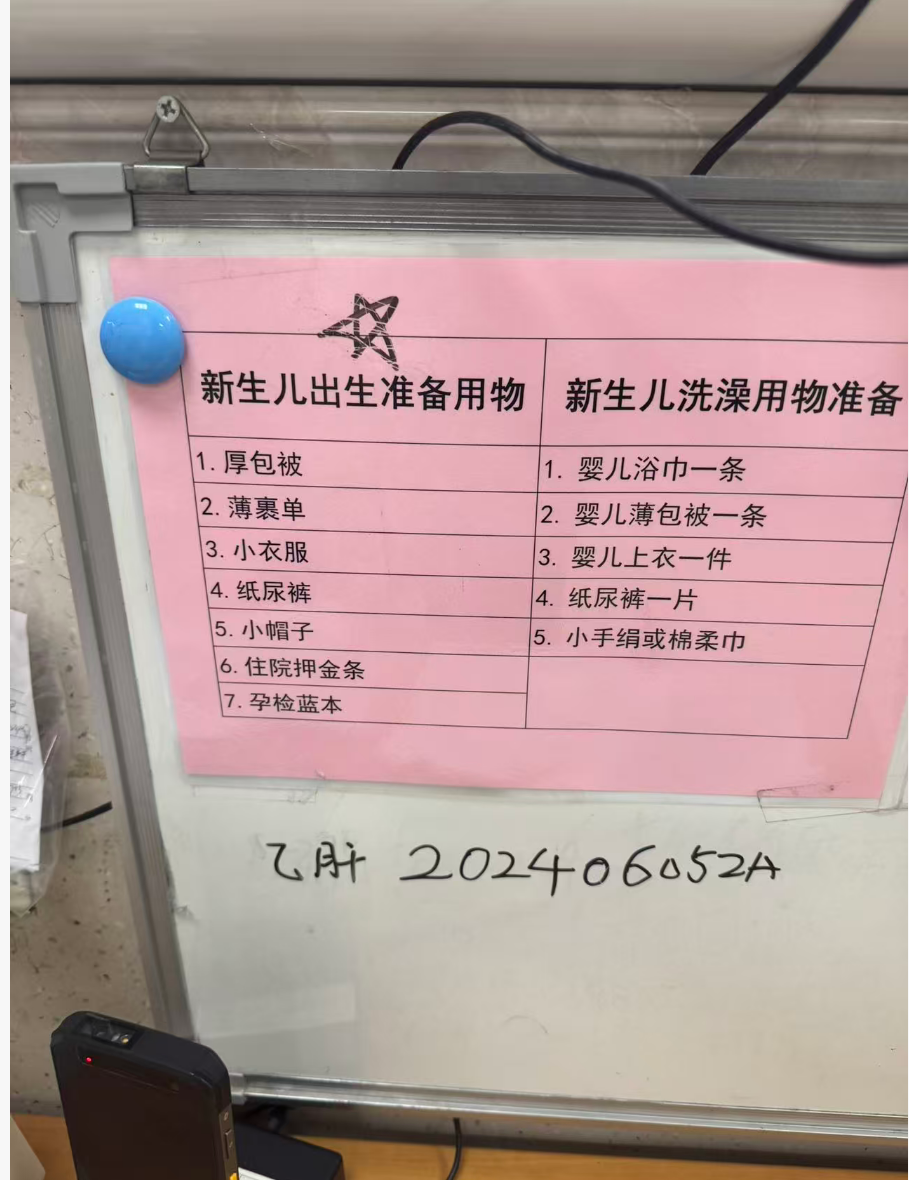 新生儿出生准备用物
1. 厚包被
2. 薄裹单
3. 小衣服
4. 纸尿裤
5. 小帽子
6. 住院押金条
7. 孕检蓝本
新生儿洗澡用物准备
1. 婴儿浴巾一条
2. 婴儿薄包被一条
3. 婴儿上衣一件
4. 纸尿裤一片
5. 小手绢或棉柔巾
乙肝 202406052A